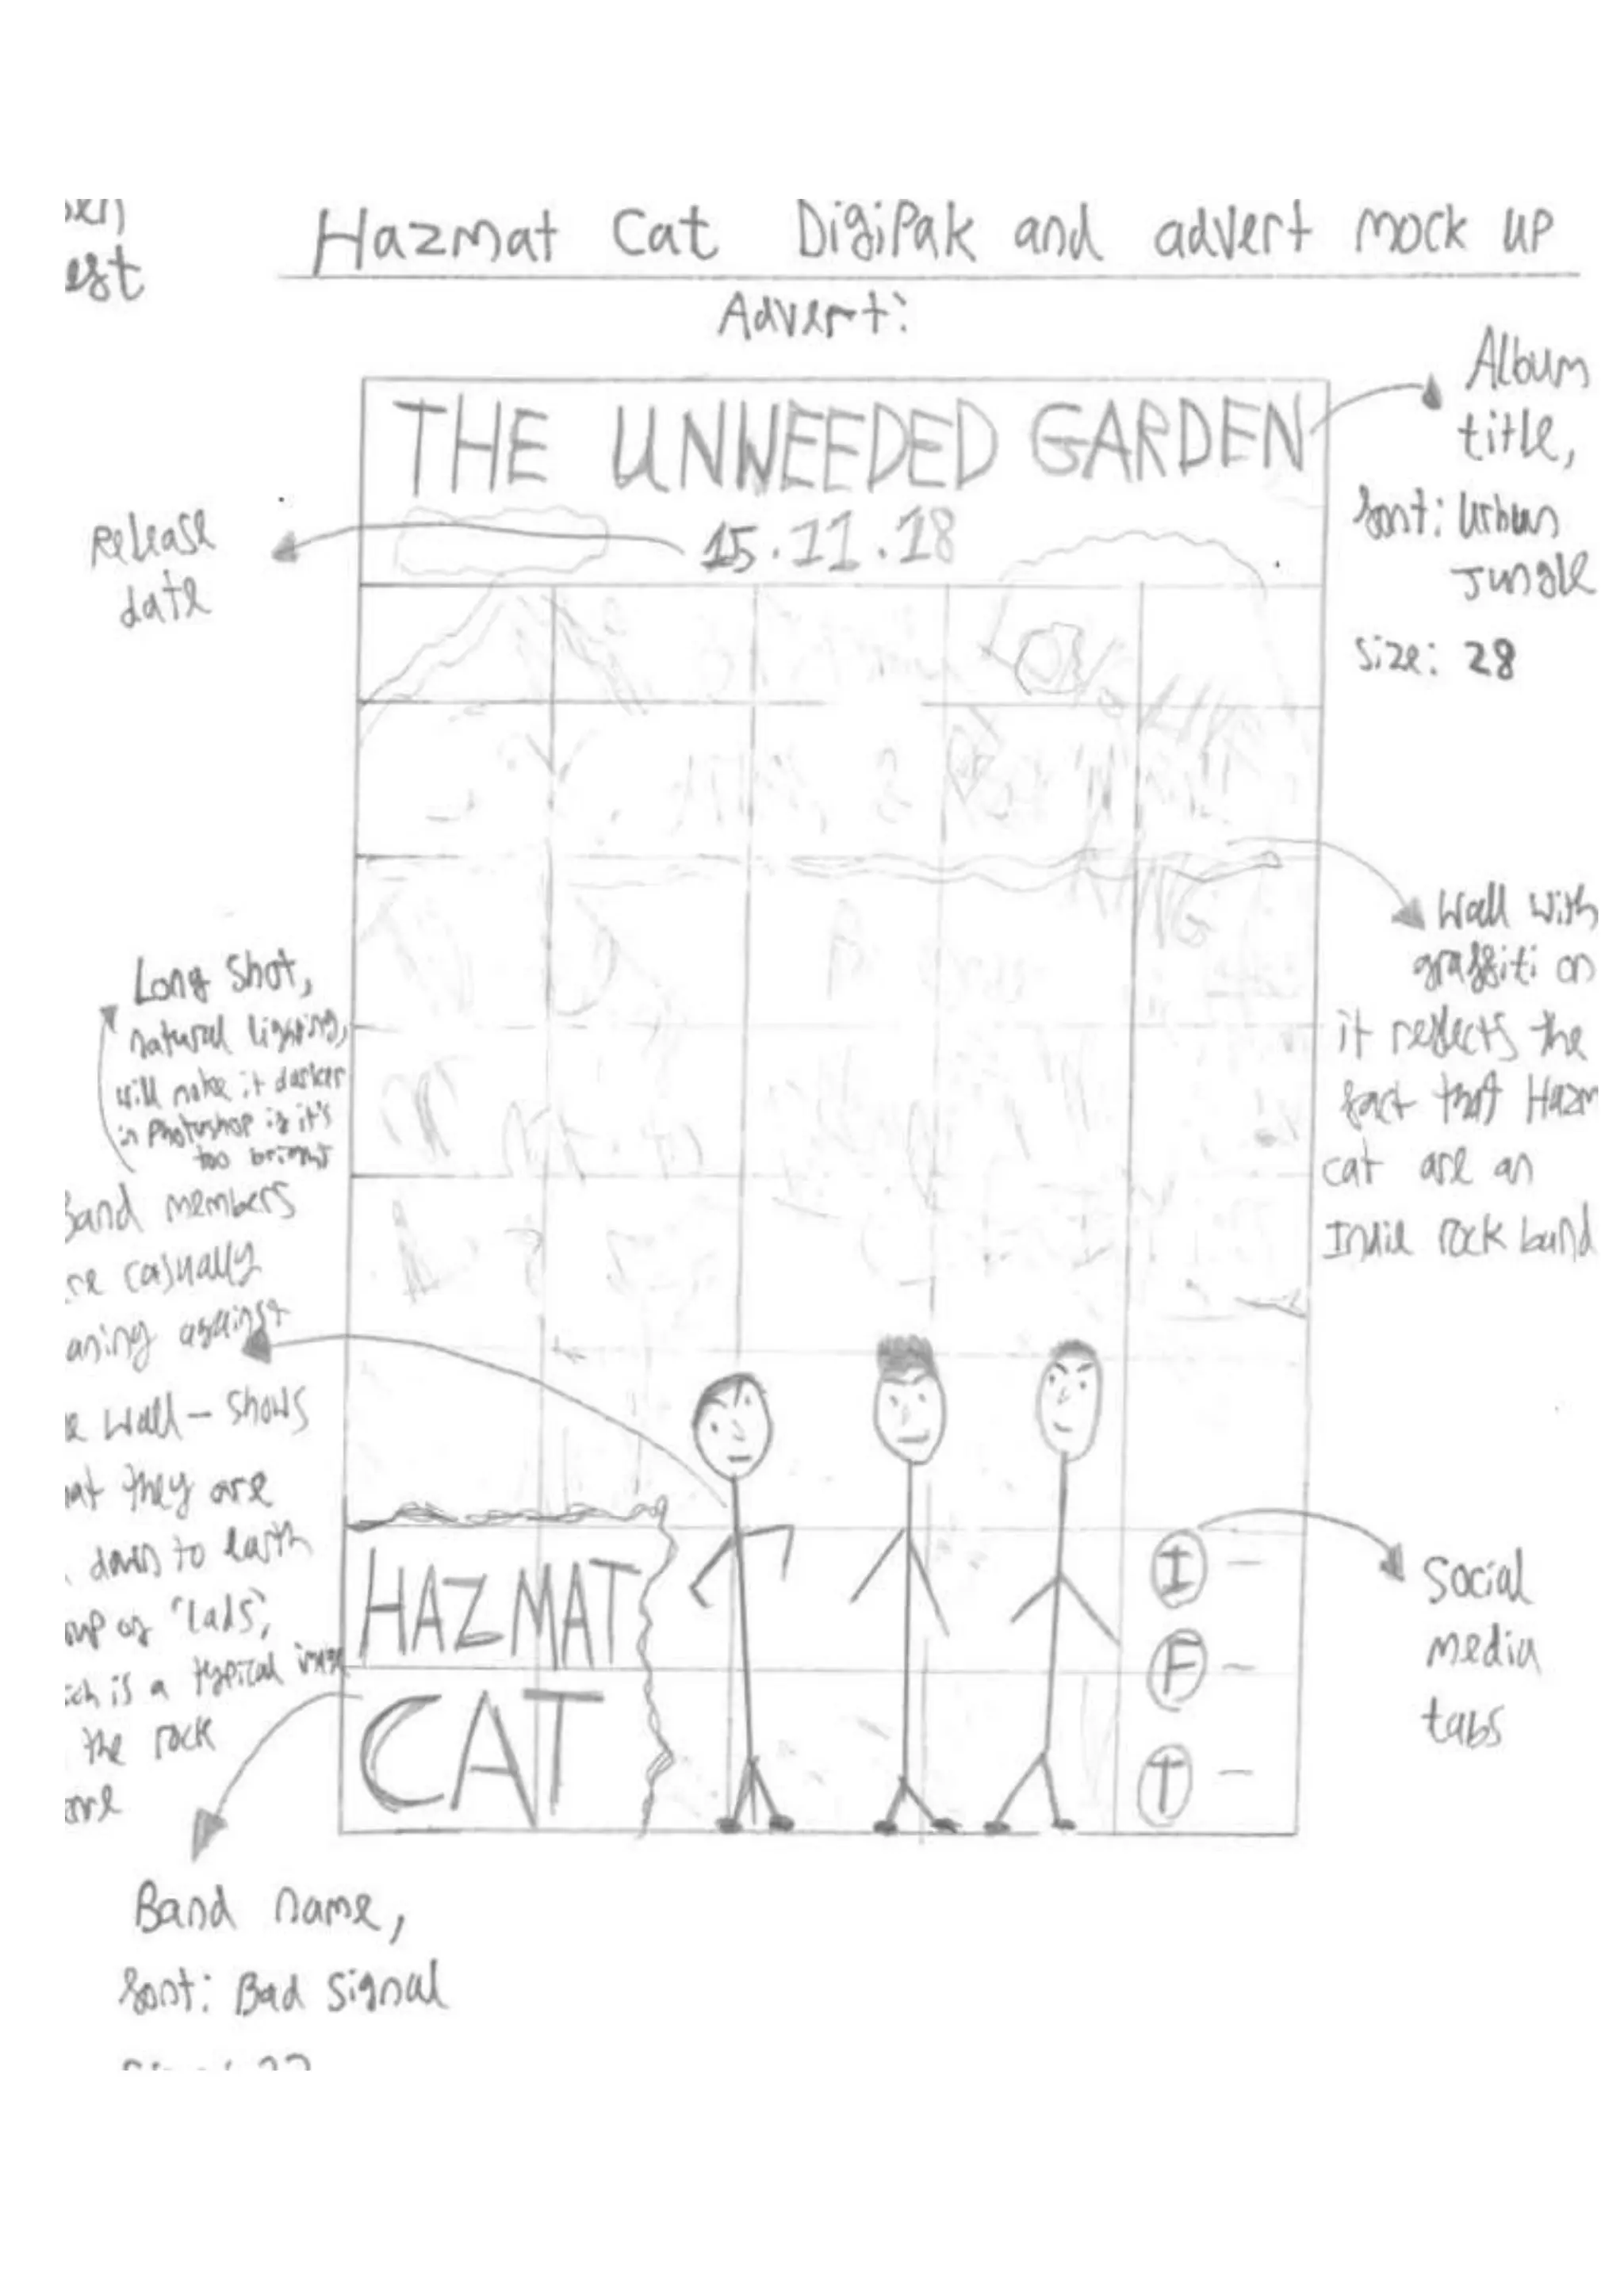 Hazmat Cat DigiPak and advert mock up
est
Advert:
Album
title,
font: Urban
Jungle
size: 28
THE UNWEEDED GARDEN
15.11.18
Release
date
Wall with
graffiti on
it reflects the
fact that Hazm
cat are an
Indie rock band
Long shot,
natural lighting,
will make it darker
in Photoshop if it's
too bright
Band members
re casually
aning against
e wall - shows
at they are
down to earth
up of 'lads',
ich is a typical image
the rock
HAZMAT
CAT
I -
F -
T -
Social
media
tabs
Band name,
font: Bad signal